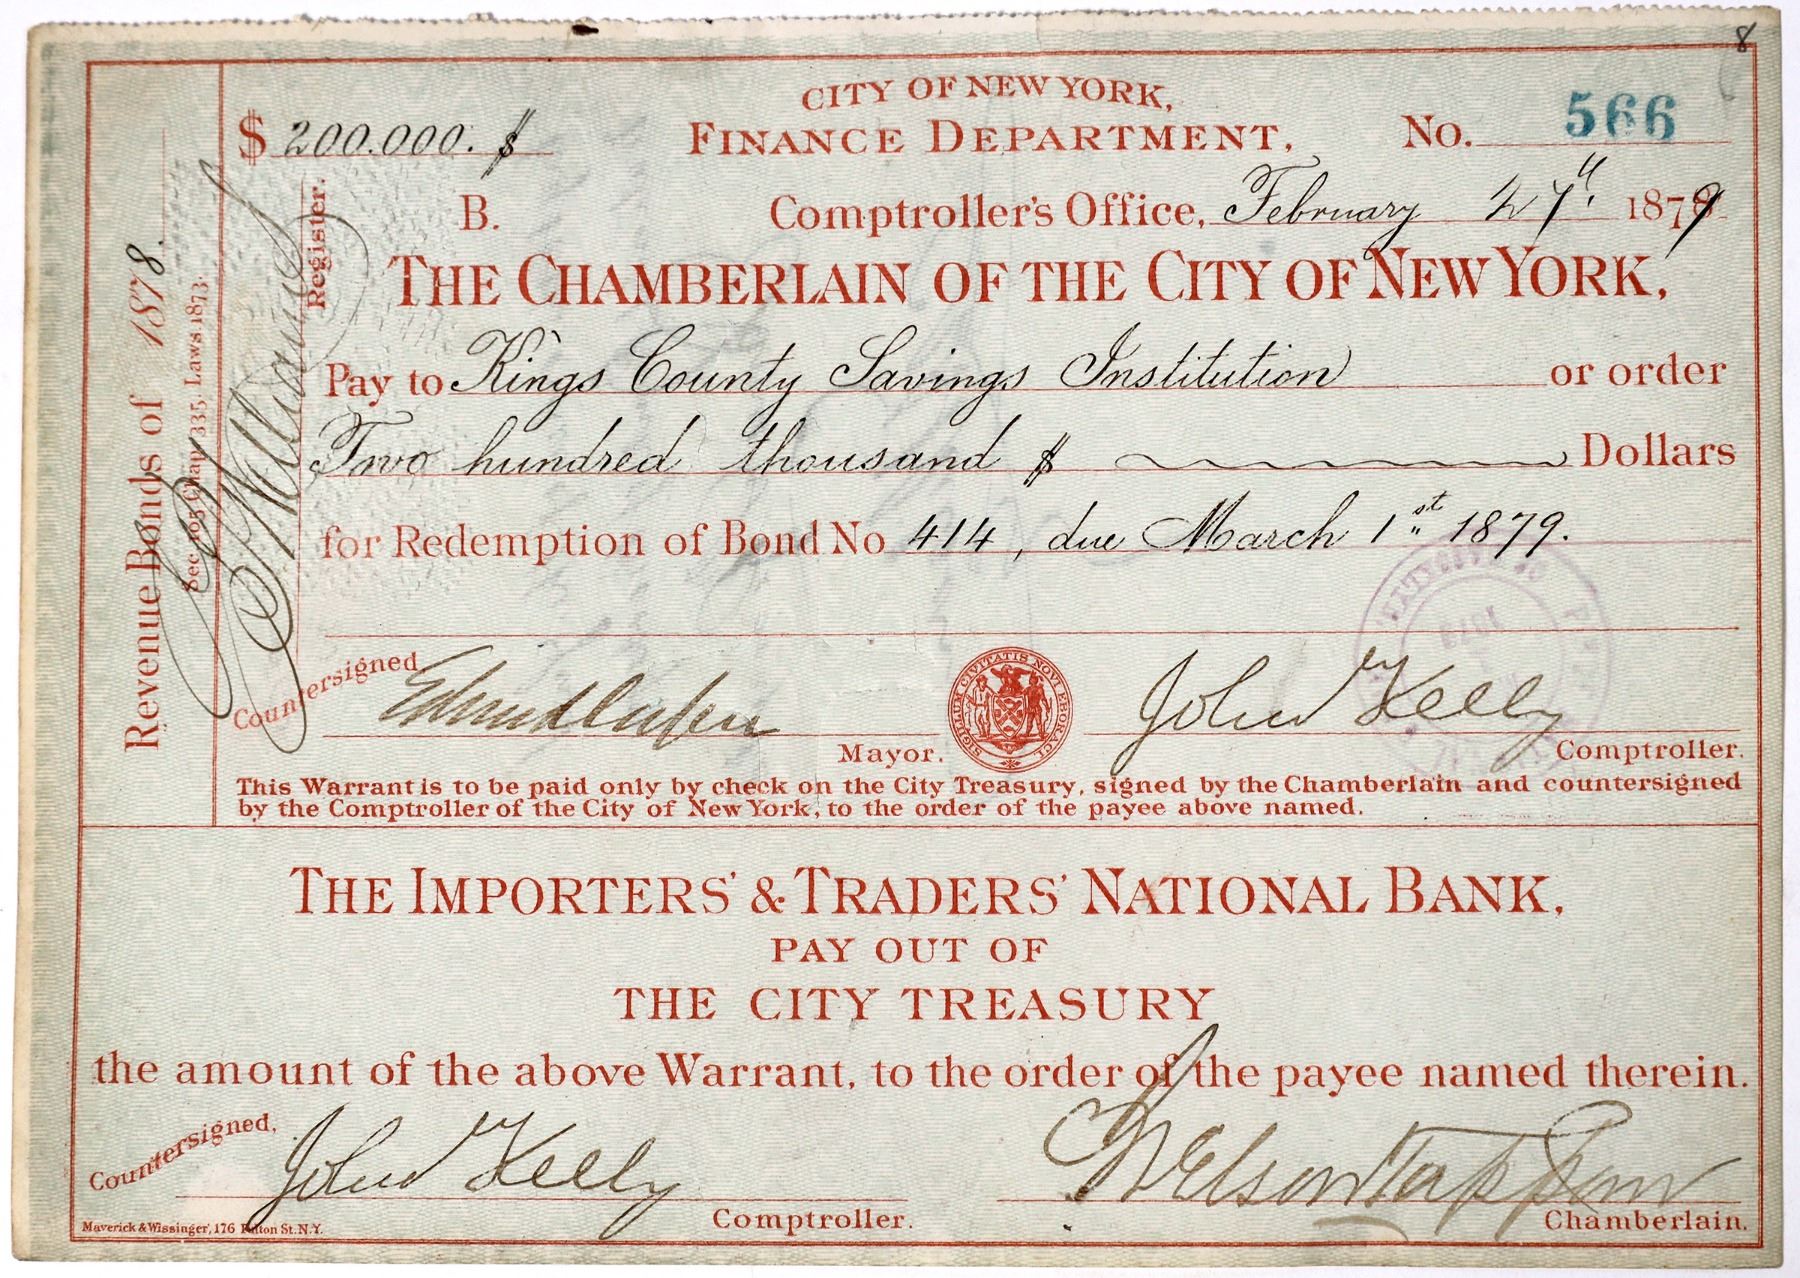 8
CITY OF NEW YORK,
$ 200.000. $ FINANCE DEPARTMENT, No. 566
B. Comptroller's Office, February 27th. 1879
THE CHAMBERLAIN OF THE CITY OF NEW YORK,
Pay to Kings County Savings Institution or order
Two hundred thousand $ Dollars
for Redemption of Bond No 414, due March 1st 1879.
Revenue Bonds of 1878.
Sec. 105 Chap. 335. Laws 1873.
Register.
Countersigned,
John Kelly
Mayor.
Comptroller.
SIGILLUM CIVITATIS NOVI EBORACI
1879
This Warrant is to be paid only by check on the City Treasury, signed by the Chamberlain and countersigned
by the Comptroller of the City of New York, to the order of the payee above named.
THE IMPORTERS' & TRADERS' NATIONAL BANK,
PAY OUT OF
THE CITY TREASURY
the amount of the above Warrant, to the order of the payee named therein.
Countersigned,
John Kelly
Comptroller.
J Nelson Tappan
Chamberlain.
Maverick & Wissinger, 176 Fulton St. N.Y.